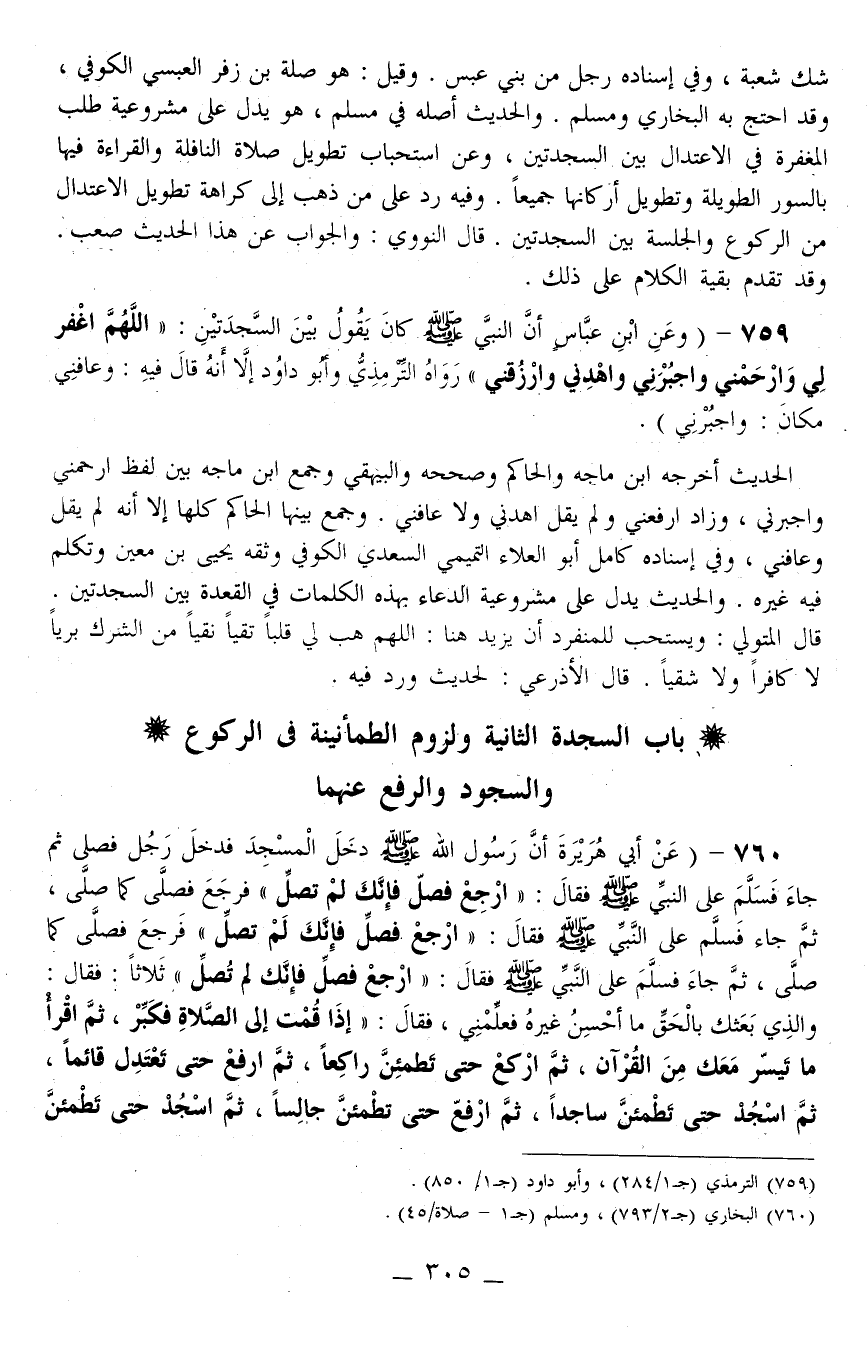 شك شعبة ، وفي إسناده رجل من بني عبس . وقيل : هو صلة بن زفر العبسي الكوفي ،
وقد احتج به البخاري ومسلم . والحديث أصله في مسلم ، هو يدل على مشروعية طلب
المغفرة في الاعتدال بين السجدتين ، وعن استحباب تطويل صلاة النافلة والقراءة فيها
بالسور الطويلة وتطويل أركانها جميعاً . وفيه رد على من ذهب إلى كراهة تطويل الاعتدال
من الركوع والجلسة بين السجدتين . قال النووي : والجواب عن هذا الحديث صعب .
وقد تقدم بقية الكلام على ذلك .
٧٥٩ – ( وعَنِ ابْنِ عبَّاسٍ أنَّ النبيَّ ﷺ كانَ يَقُولُ بيْنَ السَّجدَتيْنِ : « اللَّهُمَّ اغْفر
لِي وَارْحَمْني واجبُرْنِي واهْدِني وارْزُقني » رَوَاهُ التِّرْمِذِيُّ وأبُو داوُد إلَّا أَنهُ قالَ فيهِ : وعافنِي
مكانَ : واجبُرْنِي ) .
الحديث أخرجه ابن ماجه والحاكم وصححه والبيهقي وجمع ابن ماجه بين لفظ ارحمني
واجبرني ، وزاد ارفعني ولم يقل اهدني ولا عافني . وجمع بينها الحاكم كلها إلا أنه لم يقل
وعافني ، وفي إسناده كامل أبو العلاء التميمي السعدي الكوفي وثقه يحيى بن معين وتكلم
فيه غيره . والحديث يدل على مشروعية الدعاء بهذه الكلمات في القعدة بين السجدتين .
قال المتولي : ويستحب للمنفرد أن يزيد هنا : اللهم هب لي قلباً تقياً نقياً من الشرك برياً
لا كافراً ولا شقياً . قال الأذرعي : لحديث ورد فيه .
باب السجدة الثانية ولزوم الطمأنينة فى الركوع
والسجود والرفع عنهما
٧٦٠ – ( عَنْ أبي هُرَيْرَةَ أنَّ رَسُول الله ﷺ دخَلَ الْمسْجِدَ فدخلَ رَجُل فصلى ثم
جاءَ فَسَلَّمَ على النبيِّ ﷺ فقالَ : « ارْجِعْ فصلّ فإنَّك لمْ تصلِّ » فرجَعَ فصلَّى كما صلَّى ،
ثمَّ جاء فَسلَّم على النَّبيِّ ﷺ فقالَ : « ارْجعْ فصلِّ فإنَّكَ لَمْ تصلِّ » فَرجعَ فصلَّى كما
صلَّى ، ثمَّ جاءَ فسلَّمَ على النَّبيِّ ﷺ فقالَ : « ارْجعْ فصلِّ فإنَّك لم تُصلِّ » ثَلاثاً : فقال :
والذِي بَعَثك بالْحَقِّ ما أحْسِنُ غيرهُ فعلِّمْنِي ، فقالَ : « إذَا قُمْت إلى الصَّلاةِ فكَبِّرْ ، ثمَّ اقْرأْ
ما تَيسّر مَعَك مِنَ القُرْآن ، ثمَّ ارْكعْ حتى تَطمئِنَّ راكِعاً ، ثمَّ ارفعْ حتى تَعْتَدِل قائماً ،
ثمَّ اسْجُدْ حتى تَطْمئنَّ ساجداً ، ثمَّ ارْفعّ حتى تطْمئنَّ جالِساً ، ثمَّ اسْجُدْ حتى تَطْمئنَّ
(٧٥٩) الترمذي (جـ٢٨٤/١) ، وأبو داود (جـ١/ ٨٥٠) .
(٧٦٠) البخاري (جـ٧٩٣/٢) ، ومسلم (جـ١ – صلاة/٤٥) .
– ٣٠٥ –